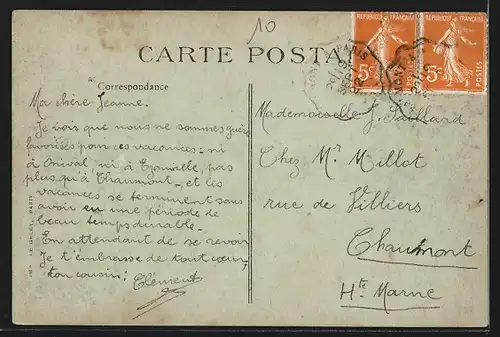 10
CARTE POSTA
REPUBLIQUE FRANÇAISE
REPUBLIQUE FRANÇAISE
5c
5c
POSTES
PARIS
Correspondance
Ma chère Jeanne.
Je vois que nous ne sommes guère
favorisés pour ces vacances - ni
à Onival ni à Epouville, pas
plus qu'à Chaumont - et les
vacances se terminent sans
avoir eu une période de
beau temps durable.
En attendant de se revoir
Je t'embrasse de tout cœur,
ton cousin: Clément
Mademoiselle J. Gaillard
Chez Mr Millot
rue de Villiers
Chaumont
Hte Marne